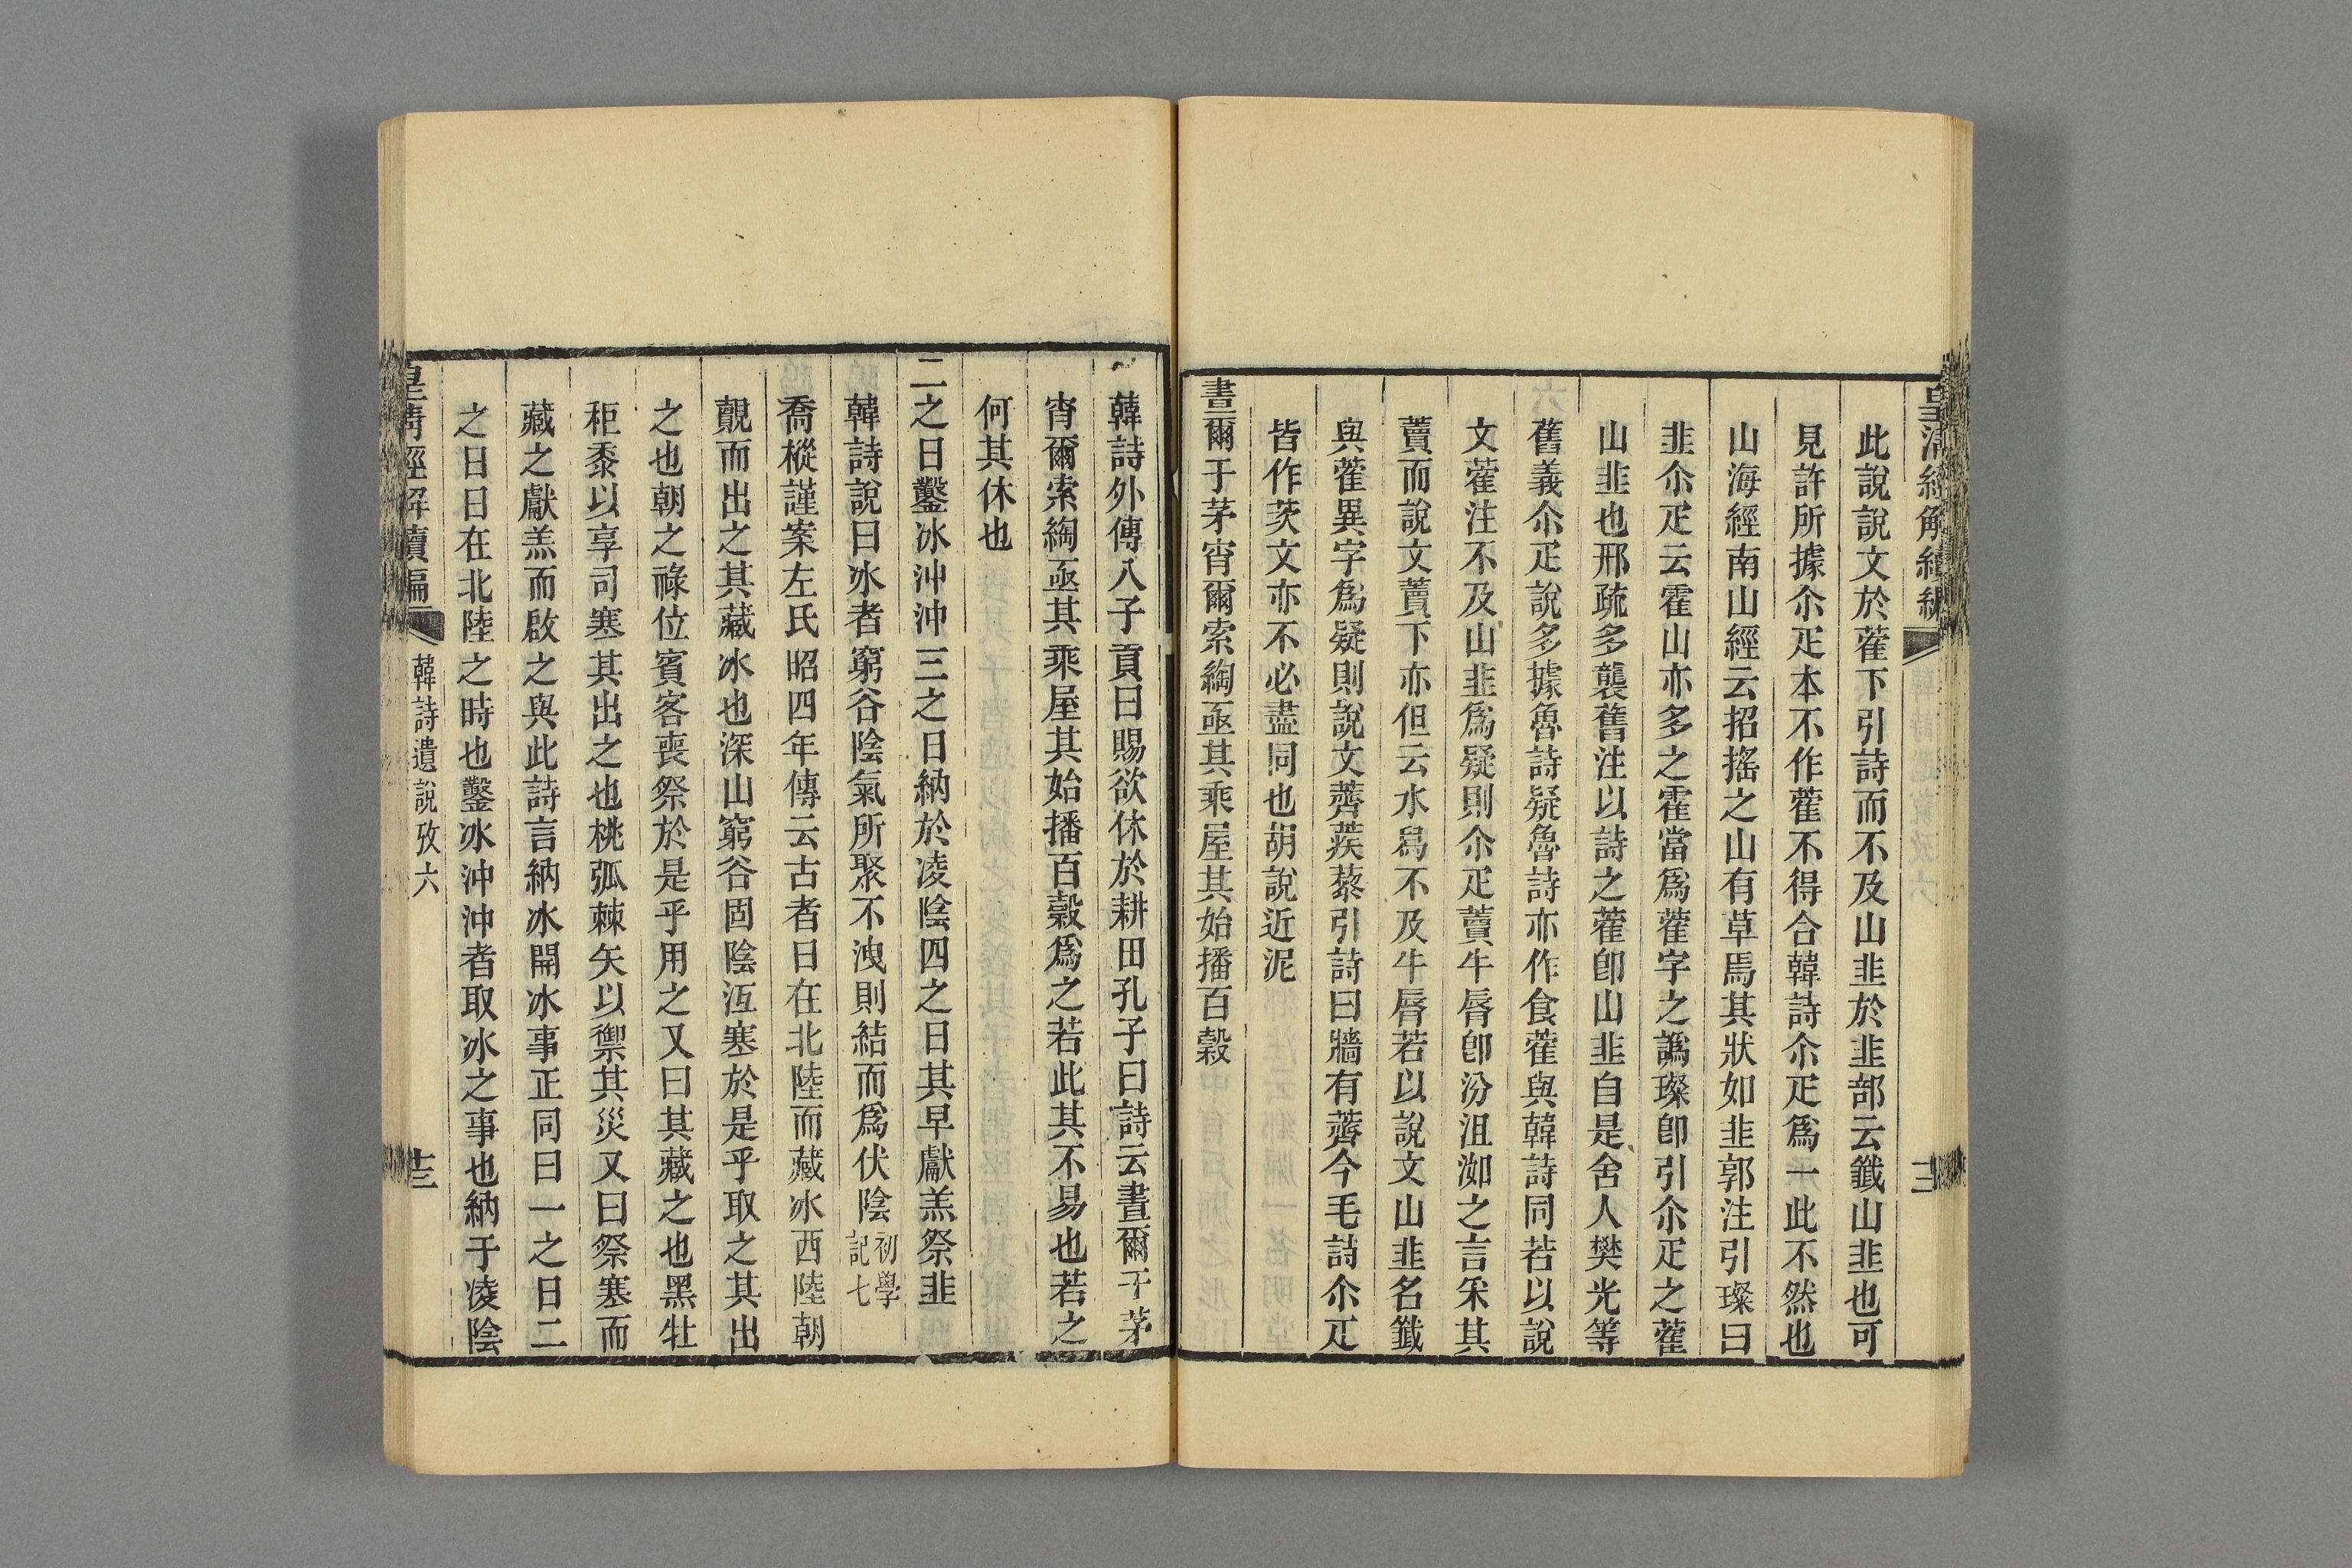 皇清經解續編
此說說文於蓷下引詩而不及山韭於韭部云韱山韭也可
見許所據尒疋本不作蓷不得合韓詩尒疋爲一此不然也
山海經南山經云招搖之山有草焉其狀如韭郭注引璨曰
韭尒疋云霍山亦多之霍當爲蓷字之譌璨卽引尒疋之蓷
山韭也邢疏多襲舊注以詩之蓷卽山韭自是舍人樊光等
舊義尒疋說多據魯詩疑魯詩亦作食蓷與韓詩同若以說
文蓷注不及山韭爲疑則尒疋藚牛脣卽汾沮洳之言采其
藚而說文藚下亦但云水舄不及牛脣若以說文山韭名韱
與蓷異字爲疑則說文薺蒺蔾引詩曰牆有薺今毛詩尒疋
皆作茨文亦不必盡同也胡說近泥
晝爾于茅宵爾索綯亟其乘屋其始播百穀
韓詩外傳八子貢曰賜欲休於耕田孔子曰詩云晝爾于茅
宵爾索綯亟其乘屋其始播百穀爲之若此其不易也若之
何其休也
二之日鑿冰沖沖三之日納於凌陰四之日其早獻羔祭韭
韓詩說曰冰者窮谷陰氣所聚不洩則結而爲伏陰初學記七
喬樅謹案左氏昭四年傳云古者日在北陸而藏冰西陸朝
覿而出之其藏冰也深山窮谷固陰沍塞於是乎取之其出
之也朝之祿位賓客喪祭於是乎用之又曰其藏之也黑牡
秬黍以享司寒其出之也桃弧棘矢以禦其災又曰祭寒而
藏之獻羔而啟之與此詩言納冰開冰事正同曰一之日二
之日日在北陸之時也鑿冰沖沖者取冰之事也納于凌陰
皇清經解續編
韓詩遺說攷六
十三